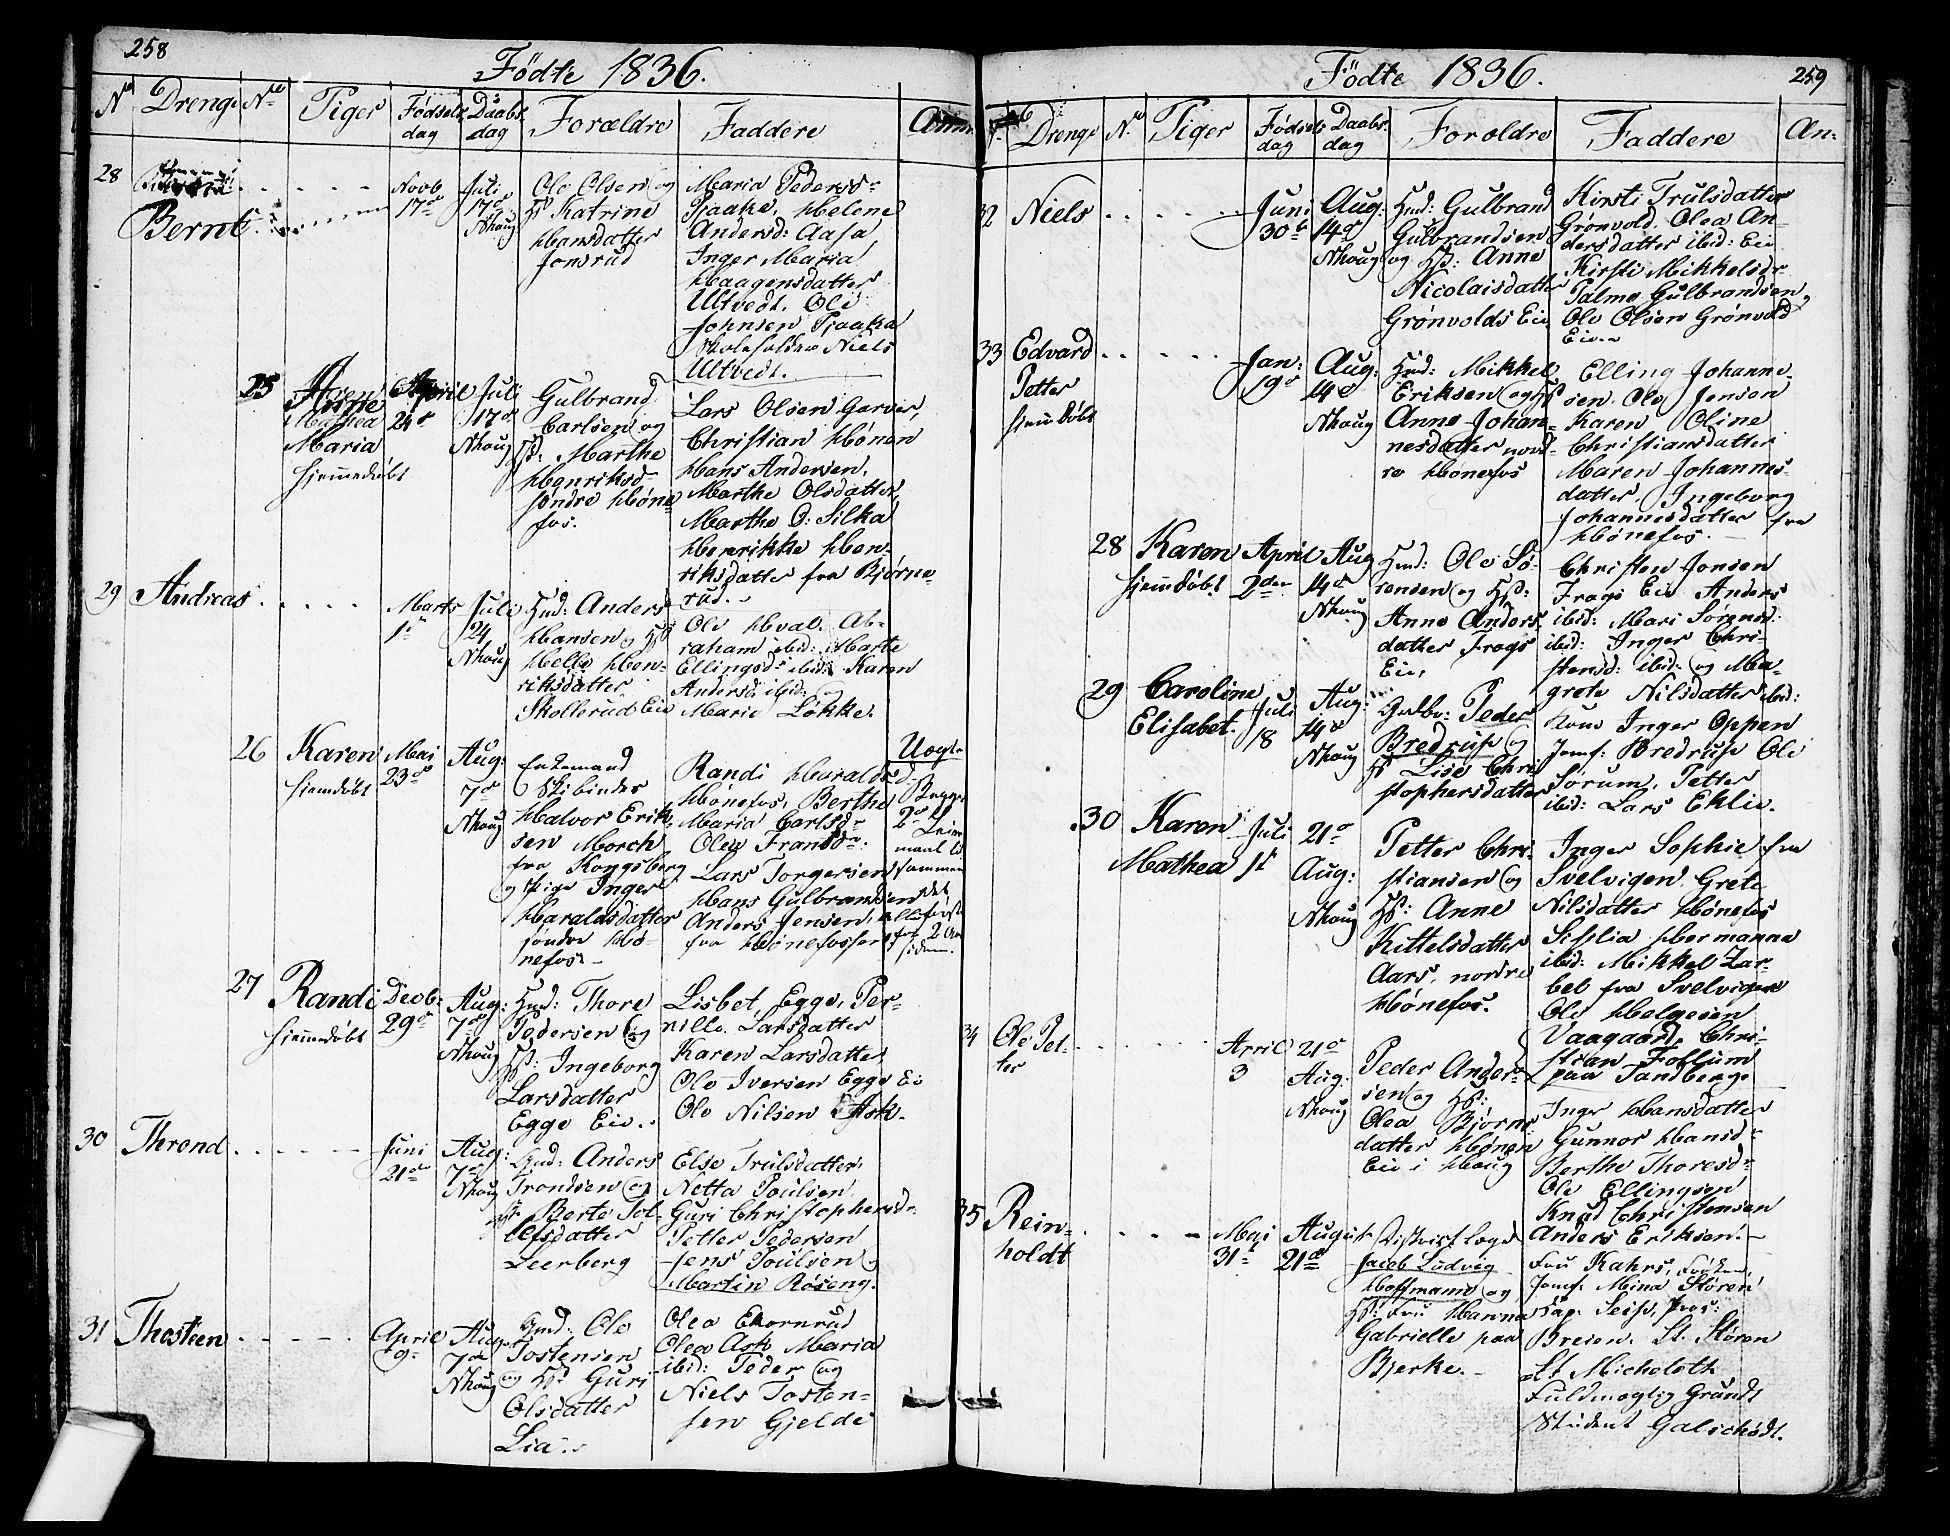 258
Födte 1836.
No Drenge No Piger Födsels dag Daabs dag Forældre Faddere Anm.
28
Bernt
Novb 17de
Juli 17de Nhoug
Ole Olsen og
Hst Katrine
Hansdatter
Jonsrud
Maria Pedersd.
Tjaaka, Helene
Andersd: Aasa
Inger Maria
Haagensdatter
Ultvedt. Ole
Johnsen Tjaaka
Skoleholder Niels
Ultvedt.
25
Mathea
Maria
hjemmedöbt
April 24de
Juli 17de Nhoug
Gulbrand
Carlsen og
Hst: Marthe
Henriksd.
söndre Höne
fos.
Lars Olsen Garver,
Christian Hönen
Hans Andersen,
Marthe Olsdatter,
Marthe O: Silka
Henrikke Hen-
riksdatter fra Bjørne-
rud.
29
Andreas
Marts 1ste
Juli 24 Nhoug
Hmd: Anders
Hansen og Hst
Helle Hen-
riksdatter
Skollerud Eie
Ole Hval. Ab-
raham ibid: Marte
Ellingsdr ibid: Karen
Andersd: ibid:
Maria Løkke.
26
Karen
hjemdöbt
Mai 23de
Aug: 7de Nhoug
Enkemand
Skibinder
Halvor Erik-
sen Morch
fra Kongsberg
og Pige Inger
Haraldsdatter
söndre Hö-
nefos
Randi Haralds d.
Hönefos, Berthe
Maria Carlsdr
Olea Fransdr
Lars Torgersen
Hans Gulbrandsen
Anders Jensen, alle
fra Hönefossen
Uægte
Begge
2de Leier
maal til
sammen
det
förste
for 2 Aar
siden.
27
Randi
hjemmedöbt
Decb: 29de
Aug: 7de Nhoug
Hmd: Thore
Pedersen og
Hst: Ingeborg
Larsdatter
Egge Eie.
Lisbet Egge, Per-
nille Larsdatter
Karen Larsdatter
Ole Iversen Egge Ei
Ole Nilsen Ask.
30
Thrond
Juni 21de
Aug: 7de Nhoug
Gmd: Anders
Trondsen og
Hst Berte Tol-
lefsdatter
Leerberg
Else Trulsdatter,
Netta Poulsen
Guri Christophersdr
Petter Pedersen
Jens Poulsen og
Martin Röseng.
31
Thosteen
April 9de
Aug: 7de Nhoug
Gmd: Ole
Tostensen
og Hst Guri
Olsdatter
Lia
Olea Ekornrud
Olea Ask Maria
ibid: Peder og
Niels Tosten-
sen Gjelde
259
Födte 1836.
Drenge No Piger Födsels dag Daabs dag Foroldre Faddere An:
32
Niels
Juni 30te
Aug: 14de Nhoug
Hmd: Gulbrand
Gulbrandsen
og Hst: Anne
Nicolaisdatter
Grönvolds Eie
Kirsti Trulsdatter
Grönvold. Olea An-
dersdatter ibid: Eie
Kirsti Mikkelsdr
Palme Gulbrandsen,
Ole Olsen Grönvold
Eie
33
Edvard
Petter
hjemdöbt
Jan: 19de
Aug: 14de Nhoug
Hmd: Mikkel
Eriksen og Hst
Anne Johan-
nesdatter nord-
re Hönefos
Elling Johanne-
sen. Ole Jensen
Karen Oline
Christiansdatter
Maren Johannes-
datter, Ingeborg
Johannesdatter fra
Hönefos.
28
Karen
hjemdöbt
April 2den
Aug 14de Nhoug
Hmd: Ole Sö-
rensen og Hst:
Anne Anders
datter Frogs
Eie,
Christen Jonsen
Frogs Eie Anders
ibid: Mari Sörensd:
ibid: Inger Chri-
stensd: ibid: og Ma-
grete Nilsdatter ibid:
29
Caroline
Elisabet.
Juli 18
Aug: 14de Nhoug
Peder
Bredrup og
Hst Lise Chri
stophersdatter
Inger Oppen
Jomf: Bredrup Ole
Sörum, Petter
ibid: Lars Eklie.
30
Karen
Mathea
Juli 1ste
21de Aug: Nhoug
Petter Chri-
stiansen og
Hst: Anne
Kittelsdatter
Aars, nordre
Hönefos.
Inger Sophie fra
Svelvigen Grete
Nilsdatter Hönefos
Sissilia Hermanna
ibid: Mikkel Zar-
bel fra Svelvigen
Ole Helgesen
Vaagaard, Chri-
stian Follum
paa Tandberg.
34
Ole Pet-
ter
April 3
21de Aug: Nhoug
Peder Ander-
sen og Hst:
Olea Björns
datter Hönen
Eie i Houg
Inger Hansdatter
Gunnor Hansdr
Berthe Thoresdr
Ole Ellingsen
Knud Christensen
Anders Eriksen.
35
Rein-
holdt
Mai 31te
August 21de
District Læge
Jacob Ludvig
Hoffmann og
Hst: Fru Hanna
Gabrielle paa
Bjerke.
Fru Kahrs, Fröken,
Jomf: Mina Stören
Cap: Seip,
Breien. Lt. Stören
Lt Micheleth
Fuldmægtig Grundt
Student Galschödt.